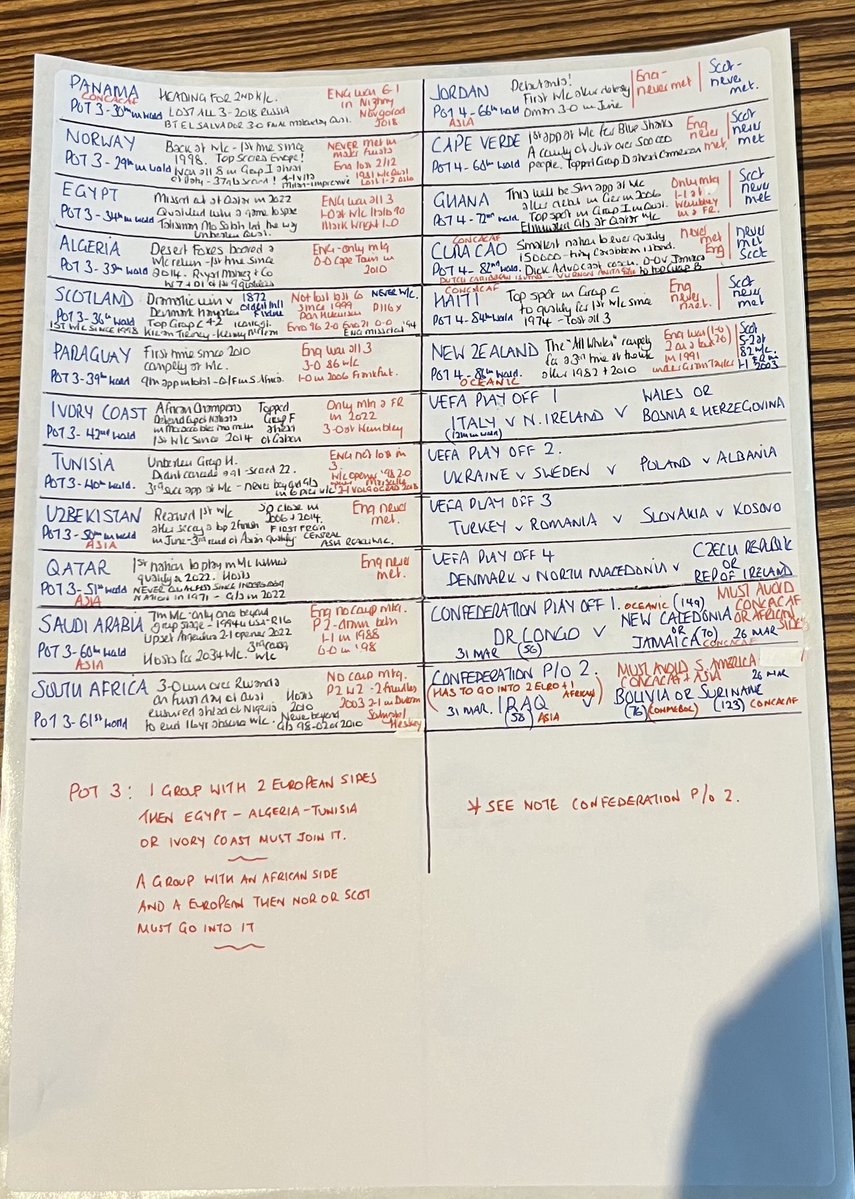 PANAMA HEADING FOR 2ND W/C. ENG won 6-1
CONCACAF in Nizhny
POT 3-30th in world LOST ALL 3-2018 RUSSIA Novgorod
BT EL SALVADOR 3-0 FINAL 2018
NORWAY Back at W/C - 1st time since NEVER met in
1998. Top scorers Europe! major finals
POT 3-29th in world Won all 8 in Group I ahead Eng lost 2/12
of Italy - 37 gls scored! 4-1 v Ita 1981 W/C Qual
Milan-impressive Lost 1-2 Oslo
EGYPT Missed out at Qatar in 2022 ENG won all 3
Qualified with a game to spare 1-0 at W/C Italia 90
POT 3-34th in world Talisman Mo Salah led the way Mark Wright 1-0
Unbeaten Qual.
ALGERIA Desert Foxes booked a ENG-only mtg
W/C return - 1st time since 0-0 Cape Town in
POT 3-35th world 2014. Riyad Mahrez + Co 2010
W7 + D1 of 1st 9 qualifiers
SCOTLAND Dramatic win v 1872 Not lost last 60 NEVER W/C.
Denmark Hampden oldest intl since 1999
POT 3-36th world fixture Don Hutchison P116 x
Top Group C 4-2
1ST W/C SINCE 1998 Kieran Tierney-Kenny McLean Euro 96 2-0 Euro 21 0-0
PARAGUAY First time since 2010 Eng won all 3
campaign at W/C. 3-0 86 W/C
POT 3-39th world 9th app in total - Q/F in S. Africa. 1-0 in 2006 Frankfurt.
IVORY COAST African Champions Topped Only mtg a FR
Defend Cup of Nations Group F in 2022
POT 3-42nd world in Morocco later this month ahead 3-0 at Wembley
1st W/C since 2014 of Gabon
TUNISIA Unbeaten Group H. ENG not lost in
Didn't concede a gl-scored 22. 3.
POT 3-40th world. 3rd succ app at W/C - never beyond Gls W/C opener '98 2-0 Marseille
in 6 prev W/C 2-1 VOLGOGRAD 2018
UZBEKISTAN Reached 1st W/C So close in Eng never
2006 + 2014. met.
POT 3-50th in world after securing a top 2 finish FIRST FROM
ASIA in June-3rd round of Asian qualify CENTRAL
ASIA REACH W/C.
QATAR 1st nation to play in W/C without Eng never
qualifying 2022. Hosts met.
POT 3-51st world NEVER QUALIFIED SINCE INDEPENDENT
ASIA NATION IN 1971 - G/S in 2022
SAUDI ARABIA 7th W/C - only once beyond Eng no comp mtg.
group stage - 1994 USA-R16 P2-drawn both
POT 3-60th world Upset Argentina 2-1 opener 2022 1-1 in 1988
ASIA Hosts for 2034 W/C. 0-0 in '98
SOUTH AFRICA 3-0 win over Rwanda No comp mtg.
on final day of Qual Hosts P2 W2 - 2 friendlies
POT 3-61st world ensured ahead of Nigeria 2010 2003 2-1 in Durban
to end 16yr absence W/C. Never beyond Southgate/
G/s 98-02 or 2010 Heskey
POT 3: 1 GROUP WITH 2 EUROPEAN SIDES
THEN EGYPT - ALGERIA-TUNISIA
OR IVORY COAST MUST JOIN IT.
A GROUP WITH AN AFRICAN SIDE
AND A EUROPEAN THEN NOR OR SCOT
MUST GO INTO IT
JORDAN Debutants! Eng- Scot-
First W/C after defeating never met never
POT 4-66th world Oman 3-0 in June met.
ASIA
CAPE VERDE 1st app at W/C for Blue Sharks Eng Scot
A country of just over 500 000 never never
POT 4-68th world people. Topped Group D ahead Cameroon met. met
GHANA This will be 5th app at W/C Only mtg Scot
after debut in Ger in 2006 1-1 at never
POT 4-72nd world. Top spot in Group I in Qual. Wembley met
Eliminated G/s at Qatar W/C in a FR.
CONCACAF
CURACAO Smallest nation to ever qualify never never
150000-tiny Caribbean island. met met
POT 4-82nd world Dick Advocaat coach. 0-0 v Jamaica Eng Scot
DUTCH CARIBBEAN ISLAND to top Group B
CONCACAF
HAITI Top spot in Group C Eng Scot
to qualify for 1st W/C since never never
POT 4-84th world 1974 - Lost all 3 met. met
NEW ZEALAND The "All Whites" campaign Eng won (1-0) Scot
for a 3rd time at finals 2 on a tour (2-0) 5-2 at
POT 4-86th world after 1982 + 2010 in 1991 82 W/C.
OCEANIC under Graham Taylor 1-1 FR in 2003
UEFA PLAY OFF 1 WALES OR
ITALY v N. IRELAND v BOSNIA & HERZEGOVINA
(12th in world)
UEFA PLAY OFF 2.
UKRAINE v SWEDEN v POLAND v ALBANIA
UEFA PLAY OFF 3
TURKEY v ROMANIA v SLOVAKIA v KOSOVO
UEFA PLAY OFF 4 CZECH REPUBLIC
OR
DENMARK v NORTH MACEDONIA v REP OF IRELAND
CONFEDERATION PLAY OFF 1. OCEANIC (149) MUST AVOID
NEW CALEDONIA CONCACAF
DR CONGO v OR OR AFRICAN
31 MAR (56) JAMAICA (70) 26 MAR SIDE
CONCACAF
CONFEDERATION P/O 2. MUST AVOID S. AMERICA
(HAS TO GO INTO 2 EURO + 1 AFRICAN) CONCACAF + ASIA 26 MAR
31 MAR. IRAQ v BOLIVIA OR SURINAME
(58) ASIA (76) (CONMEBOL) (123) CONCACAF
* SEE NOTE CONFEDERATION P/O 2.